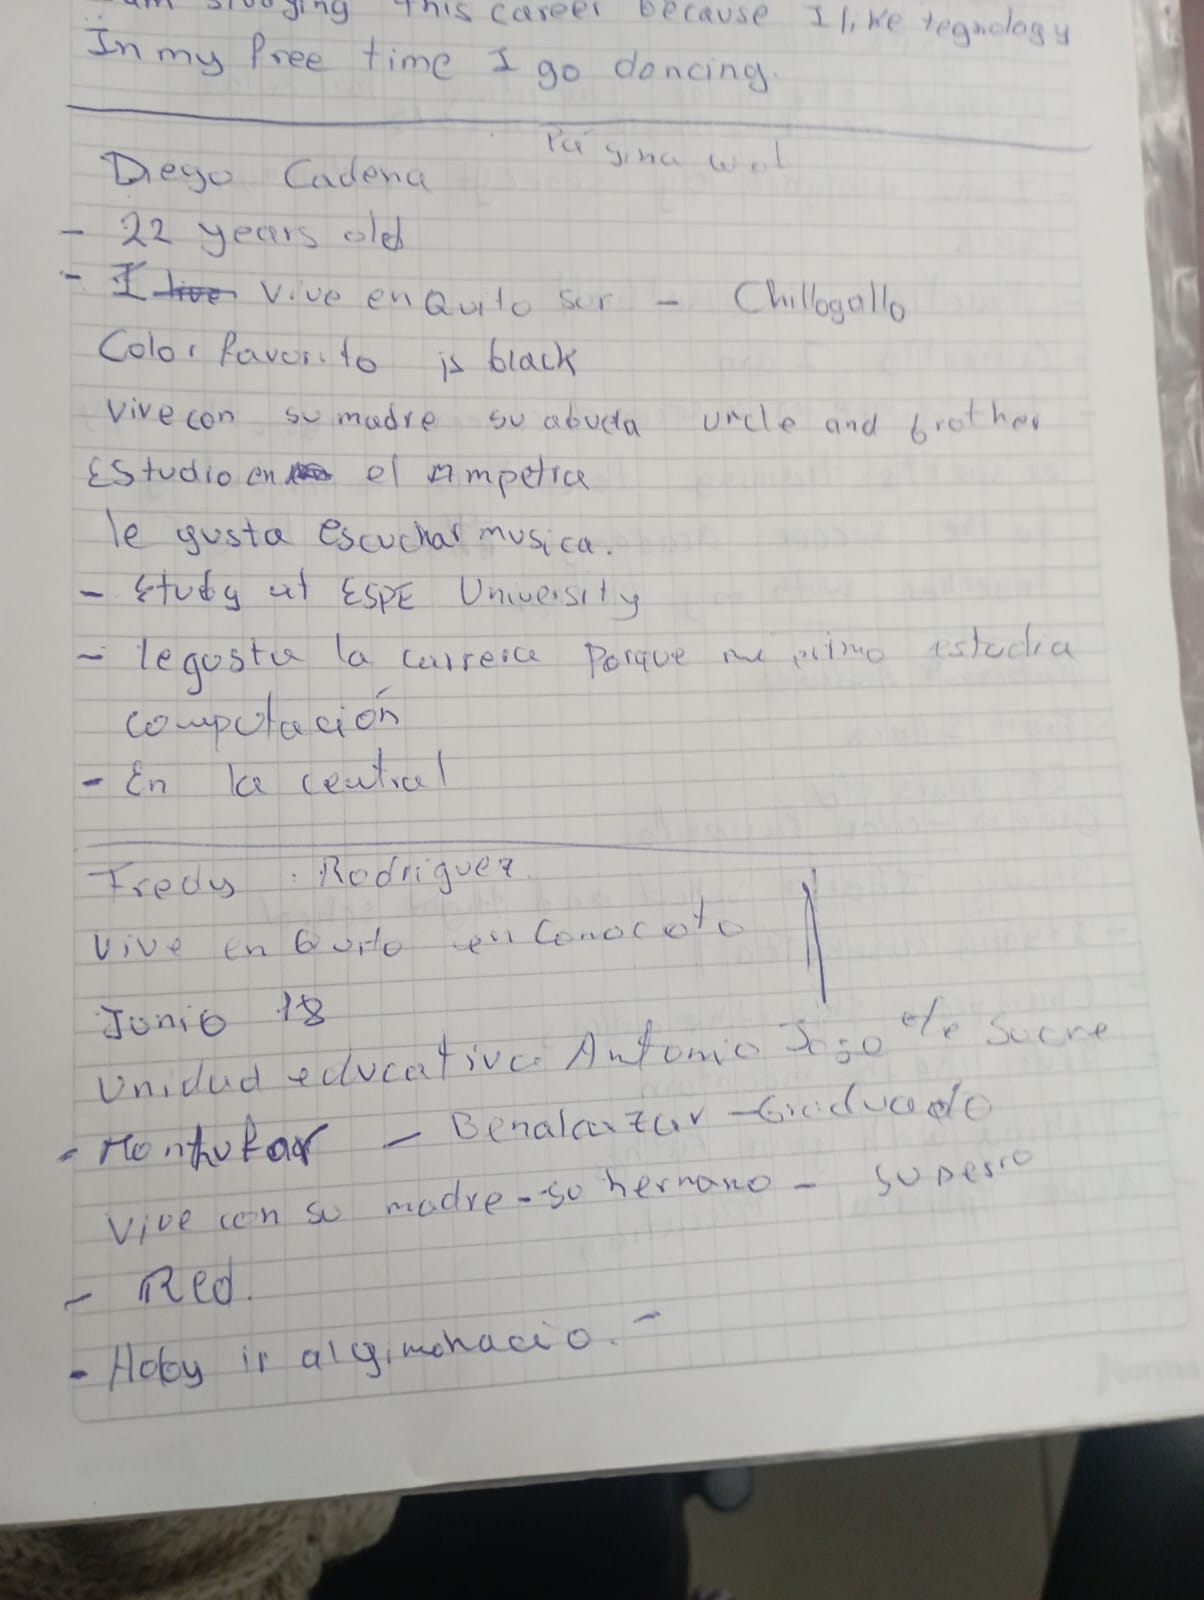 am studying this career because I like tegnology
In my free time I go dancing.
Página
Diego Cadena
- 22 years old
- I live vive en Quito sur - Chillogallo
Color favorito is black
vive con su madre su abuela uncle and brother
Estudio en el
le gusta escuchar musica.
- Study at ESPE University
- le gusta la carrera Porque mi primo estudia
computación
- En la central
Fredy Rodriguez.
Vive en Quito en Conocoto
Junio 18
Unidad educativa Antonio José de Sucre
- Montufar - Benalcazar - Graduado
Vive con su madre - su hermano - su perro
- Red.
- Hoby ir al gimnacio. -
Norma